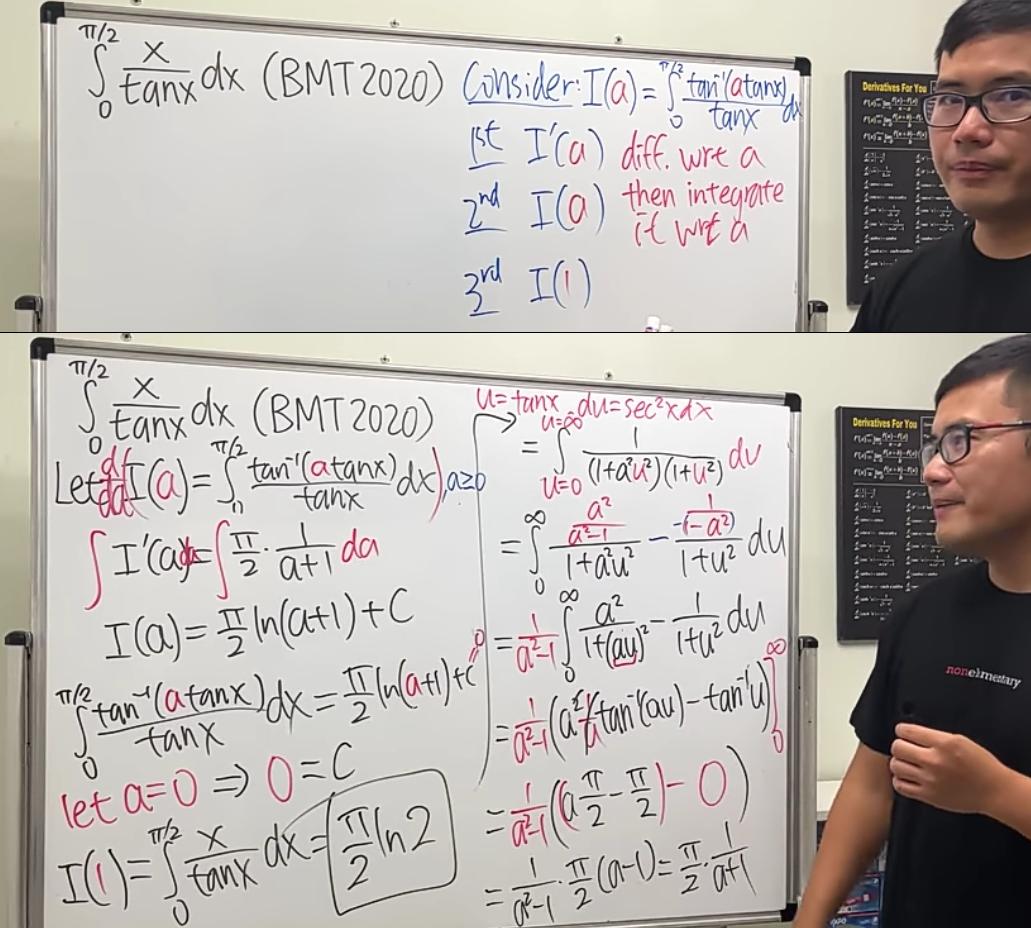 ∫₀^{π/2} x/tanx dx (BMT 2020)
Consider: I(a) = ∫₀^{π/2} tan⁻¹(a tanx)/tanx dx
1st I'(a) diff. wrt a
2nd I(a) then integrate it wrt a
3rd I(1)
Derivatives For You
∫₀^{π/2} x/tanx dx (BMT 2020)
Let d/da I(a) = ∫₀^{π/2} tan⁻¹(a tanx)/tanx dx), a≥0
∫ I'(a) = ∫ π/2 · 1/(a+1) da
I(a) = π/2 ln(a+1) + C
∫₀^{π/2} tan⁻¹(a tanx)/tanx dx = π/2 ln(a+1) + C 0
let a=0 ⇒ 0=C
I(1) = ∫₀^{π/2} x/tanx dx = π/2 ln2
u=tanx du=sec²x dx
= ∫_{u=0}^{u=∞} 1/((1+a²u²)(1+u²)) du
= ∫₀^∞ (a²/(a²-1))/(1+a²u²) - (1/(1-a²))/(1+u²) du
= 1/(a²-1) ∫₀^∞ a²/(1+(au)²) - 1/(1+u²) du
= 1/(a²-1) (a² · 1/a tan⁻¹(au) - tan⁻¹u) |₀^∞
= 1/(a²-1) ((a π/2 - π/2) - 0)
= 1/(a²-1) · π/2 (a-1) = π/2 · 1/(a+1)
Derivatives For You
nonelementary